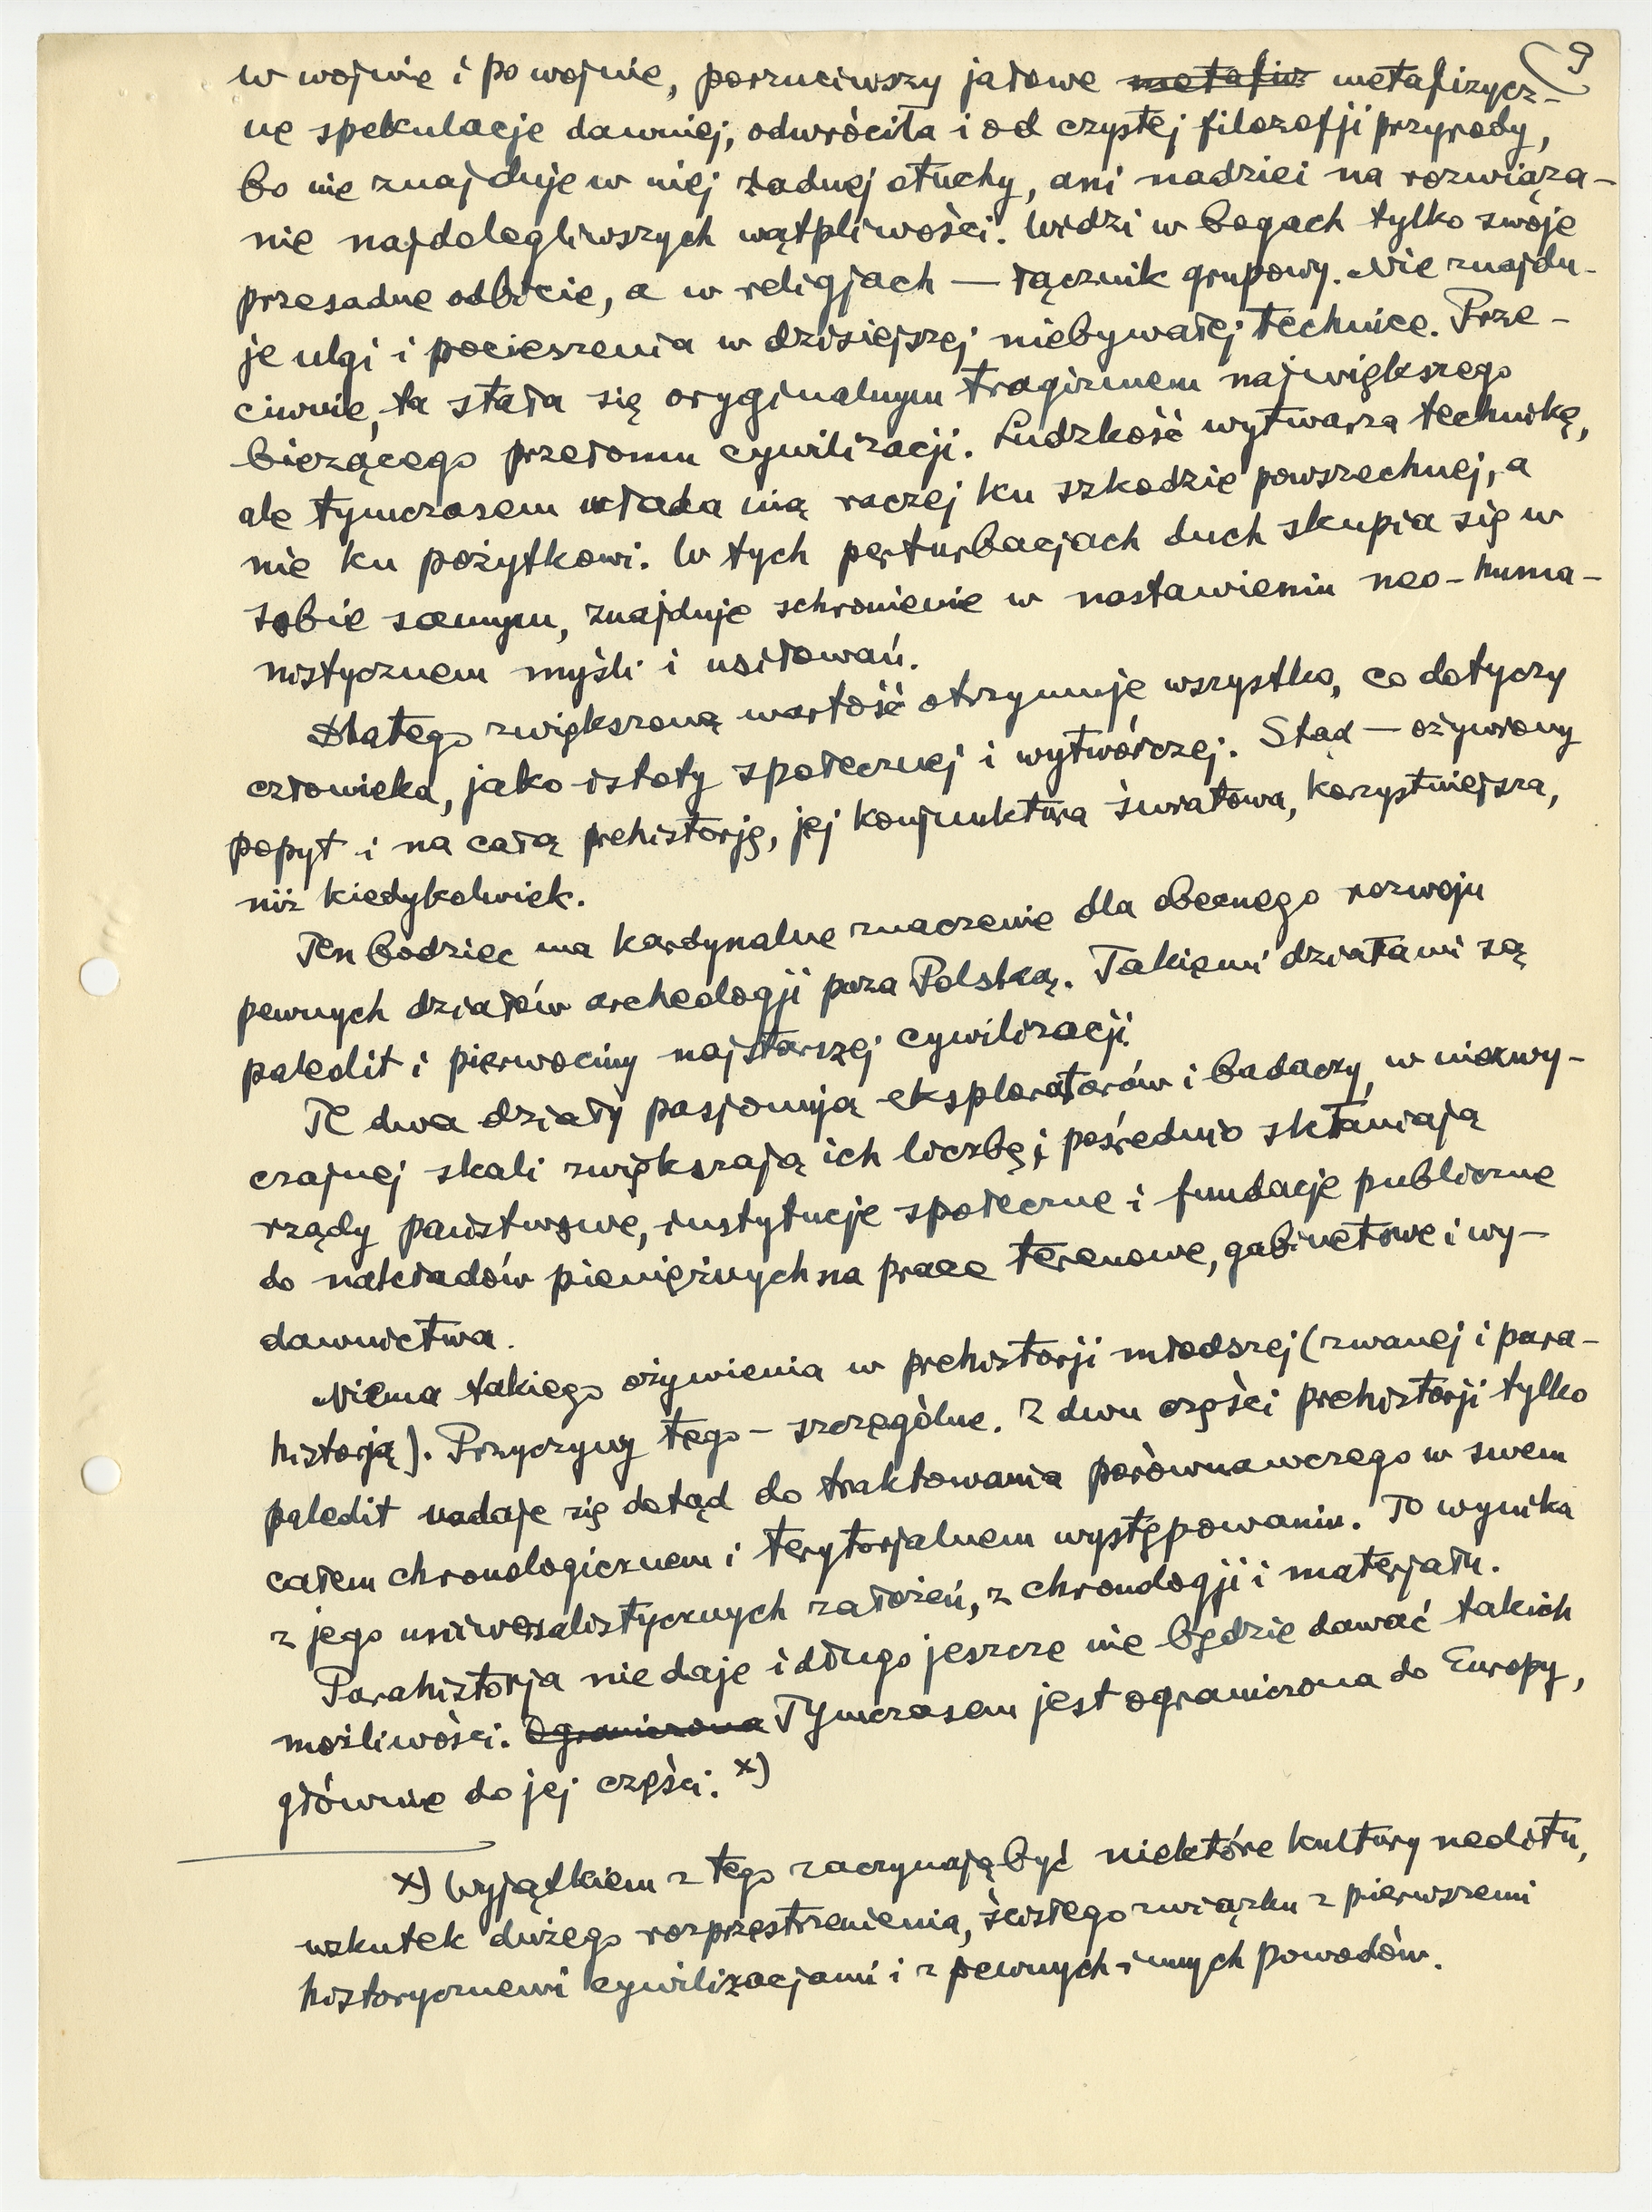 9
w wojnie i po wojnie, porzuciwszy jałowe metafiz metafizycz-
ne spekulacje dawniej, odwróciła i od czystej filozofji przyrody,
bo nie znajduje w niej żadnej otuchy, ani nadziei na rozwiąza-
nie najdolegliwszych wątpliwości. Widzi w bogach tylko swoje
przesadne odbicie, a w religjach — łącznik grupowy. Nie znajdu-
je ulgi i pocieszenia w dzisiejszej niebywałej technice. Prze-
ciwnie, ta stała się oryginalnym tragizmem największego
bieżącego przełomu cywilizacji. Ludzkość wytwarza technikę,
ale tymczasem włada nią raczej ku szkodzie powszechnej, a
nie ku pożytkowi. W tych perturbacjach duch skupia się w
sobie samym, znajduje schronienie w nastawieniu neo-huma-
nistycznem myśli i usiłowań.
Dlatego zwiększoną wartość otrzymuje wszystko, co dotyczy
człowieka, jako istoty społecznej i wytwórczej. Stąd — ożywiony
popyt i na całą prehistorję, jej konjunktura światowa, korzystniejsza,
niż kiedykolwiek.
Ten bodziec ma kardynalne znaczenie dla obecnego rozwoju
pewnych działów archeologji poza Polską. Takiemi działami są
paleolit i pierwociny najstarszej cywilizacji.
Te dwa działy pasjonują eksploratorów i badaczy, w niezwy-
czajnej skali zwiększają ich liczbę i pośrednio skłaniają
rządy państwowe, instytucje społeczne i fundacje publiczne
do nakładów pieniężnych na prace terenowe, gabinetowe i wy-
dawnictwa.
Niema takiego ożywienia w prehistorji młodszej (zwanej i para-
historją). Przyczyny tego - szczególne. Z dwu części prehistorji tylko
paleolit nadaje się dotąd do traktowania porównawczego w swem
całem chronologicznem i terytorjalnem występowaniu. To wynika
z jego uniwersalistycznych założeń, z chronologji i materjału.
Parahistorja nie daje i długo jeszcze nie będzie dawać takich
możliwości. Ograniczona Tymczasem jest ograniczona do Europy,
głównie do jej części. x)
x) Wyjątkiem z tego zaczynają być niektóre kultury neolitu,
wskutek dużego rozprzestrzenienia, ścisłego związku z pierwszemi
historycznemi cywilizacjami i z pewnych innych powodów.